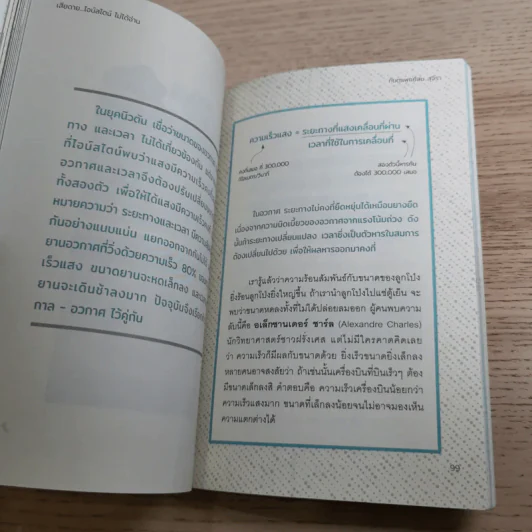 เสียดาย...ไอน์สไตน์ ไม่ได้อ่าน
ในยุคนิวตัน เชื่อว่าขนาดของอวกาศ
ทาง และเวลา ไม่ได้เกี่ยวข้องกัน
ที่ไอน์สไตน์พบว่าแสงมีความเร็วคงที่
อวกาศและเวลาจึงต้องปรับเปลี่ยน
ทั้งสองตัว เพื่อให้ได้แสงมีความเร็ว
หมายความว่า ระยะทางและเวลา มีความ
กันอย่างแนบแน่น แยกออกจากกันไม่ได้
ยานอวกาศที่วิ่งด้วยความเร็ว 80%
เร็วแสง ขนาดยานจะหดเล็กลง และ
ยานจะเดินช้าลงมาก ปัจจุบันจึงเรียก
กาล - อวกาศ ไว้คู่กัน
ทันตแพทย์สม สุจีรา
ความเร็วแสง = ระยะทางที่แสงเคลื่อนที่ผ่าน
เวลาที่ใช้ในการเคลื่อนที่
คงที่เสมอ ที่ 300,000
กิโลเมตร/วินาที
สองตัวนี้หารกัน
ต้องได้ 300,000 เสมอ
ในอวกาศ ระยะทางไม่คงที่ยืดหยุ่นได้เหมือนยางยืด
เนื่องจากความบิดเบี้ยวของอวกาศจากแรงโน้มถ่วง ดัง
นั้นถ้าระยะทางเปลี่ยนแปลง เวลาซึ่งเป็นตัวหารในสมการ
ต้องเปลี่ยนไปด้วย เพื่อให้ผลหารออกมาคงที่
เรารู้แล้วว่าความร้อนสัมพันธ์กับขนาดของลูกโป่ง
ยิ่งร้อนลูกโป่งยิ่งใหญ่ขึ้น ถ้าเรานำลูกโป่งไปแช่ตู้เย็น จะ
พบว่าขนาดหดลงทั้งที่ไม่ได้ปล่อยลมออก ผู้ค้นพบความ
ลับนี้คือ อเล็กซานเดอร์ ชาร์ล (Alexandre Charles)
นักวิทยาศาสตร์ชาวฝรั่งเศส แต่ไม่มีใครคาดคิดเลย
ว่า ความเร็วก็มีผลกับขนาดด้วย ยิ่งเร็วขนาดยิ่งเล็กลง
หลายคนอาจสงสัยว่า ถ้าเช่นนั้นเครื่องบินที่บินเร็วๆ ต้อง
มีขนาดเล็กลงสิ คำตอบคือ ความเร็วเครื่องบินน้อยกว่า
ความเร็วแสงมาก ขนาดที่เล็กลงน้อยจนไม่อาจมองเห็น
ความแตกต่างได้
99